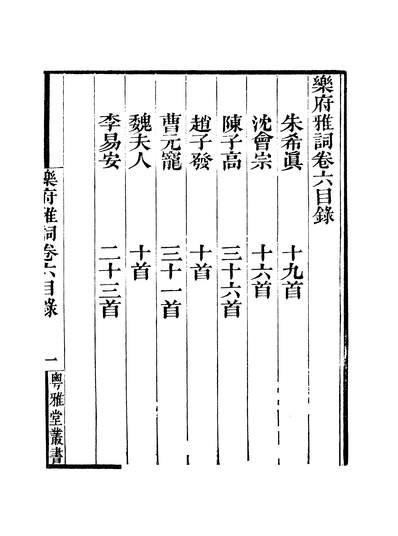 樂府雅詞卷六目錄
朱希眞 十九首
沈會宗 十六首
陳子高 三十六首
趙子發 十首
曹元寵 三十一首
魏夫人 十首
李易安 二十三首
樂府雅詞卷六目錄 一 粤雅堂叢書